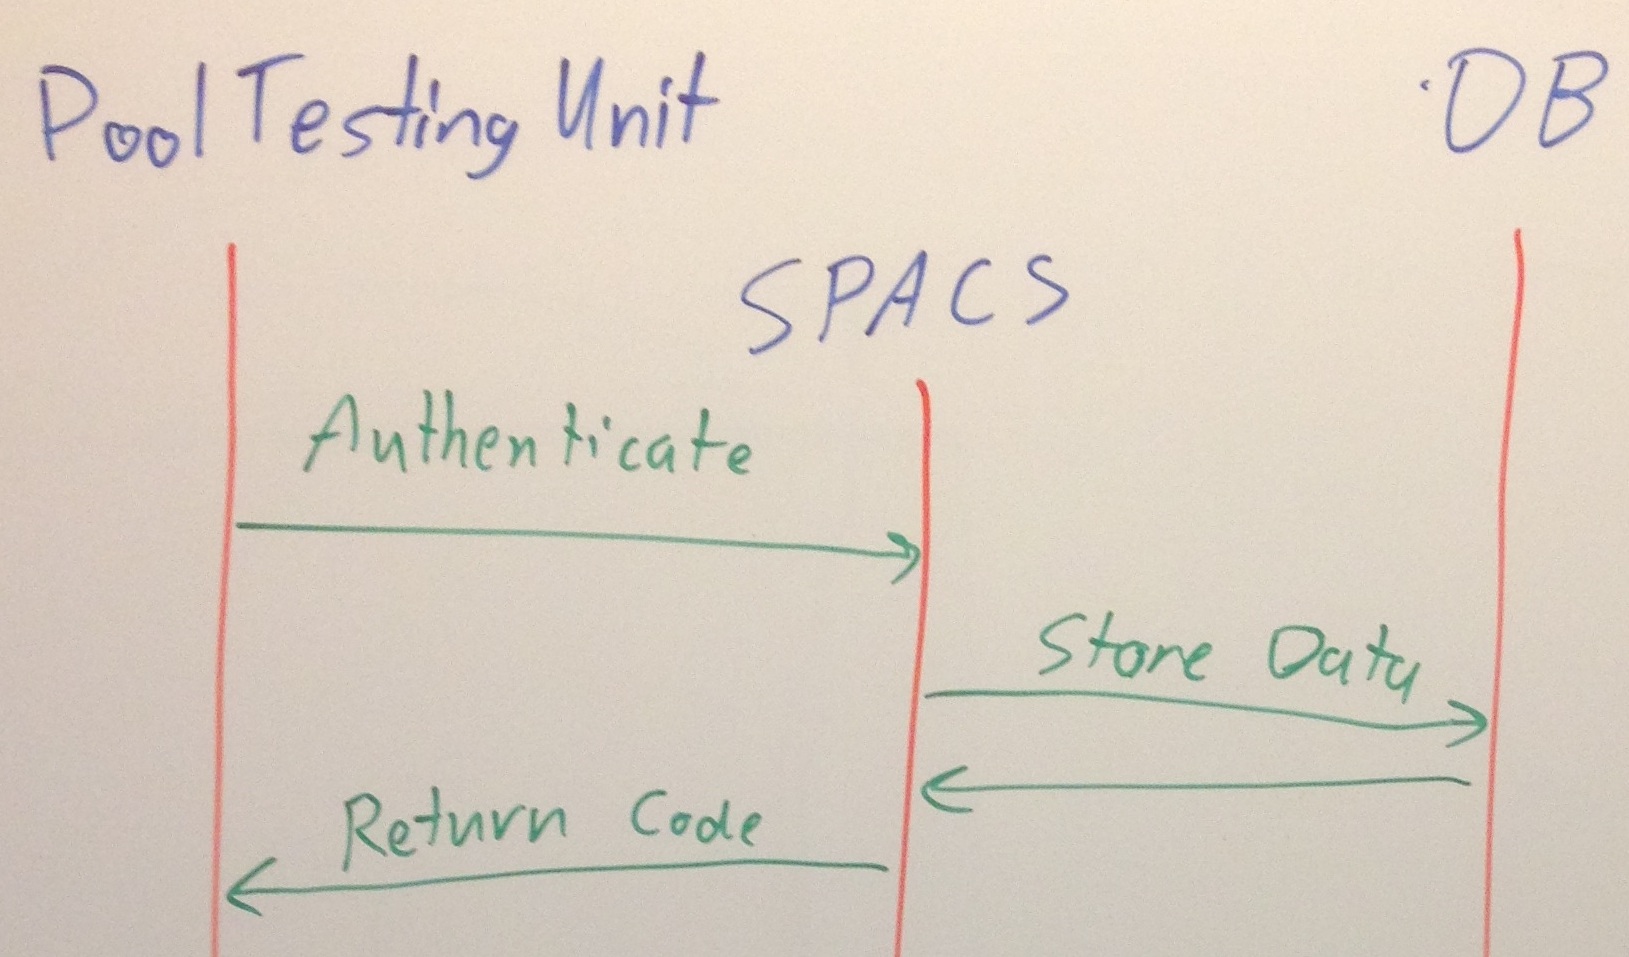 Pool Testing Unit
DB
SPACS
Authenticate
Store Data
Return Code